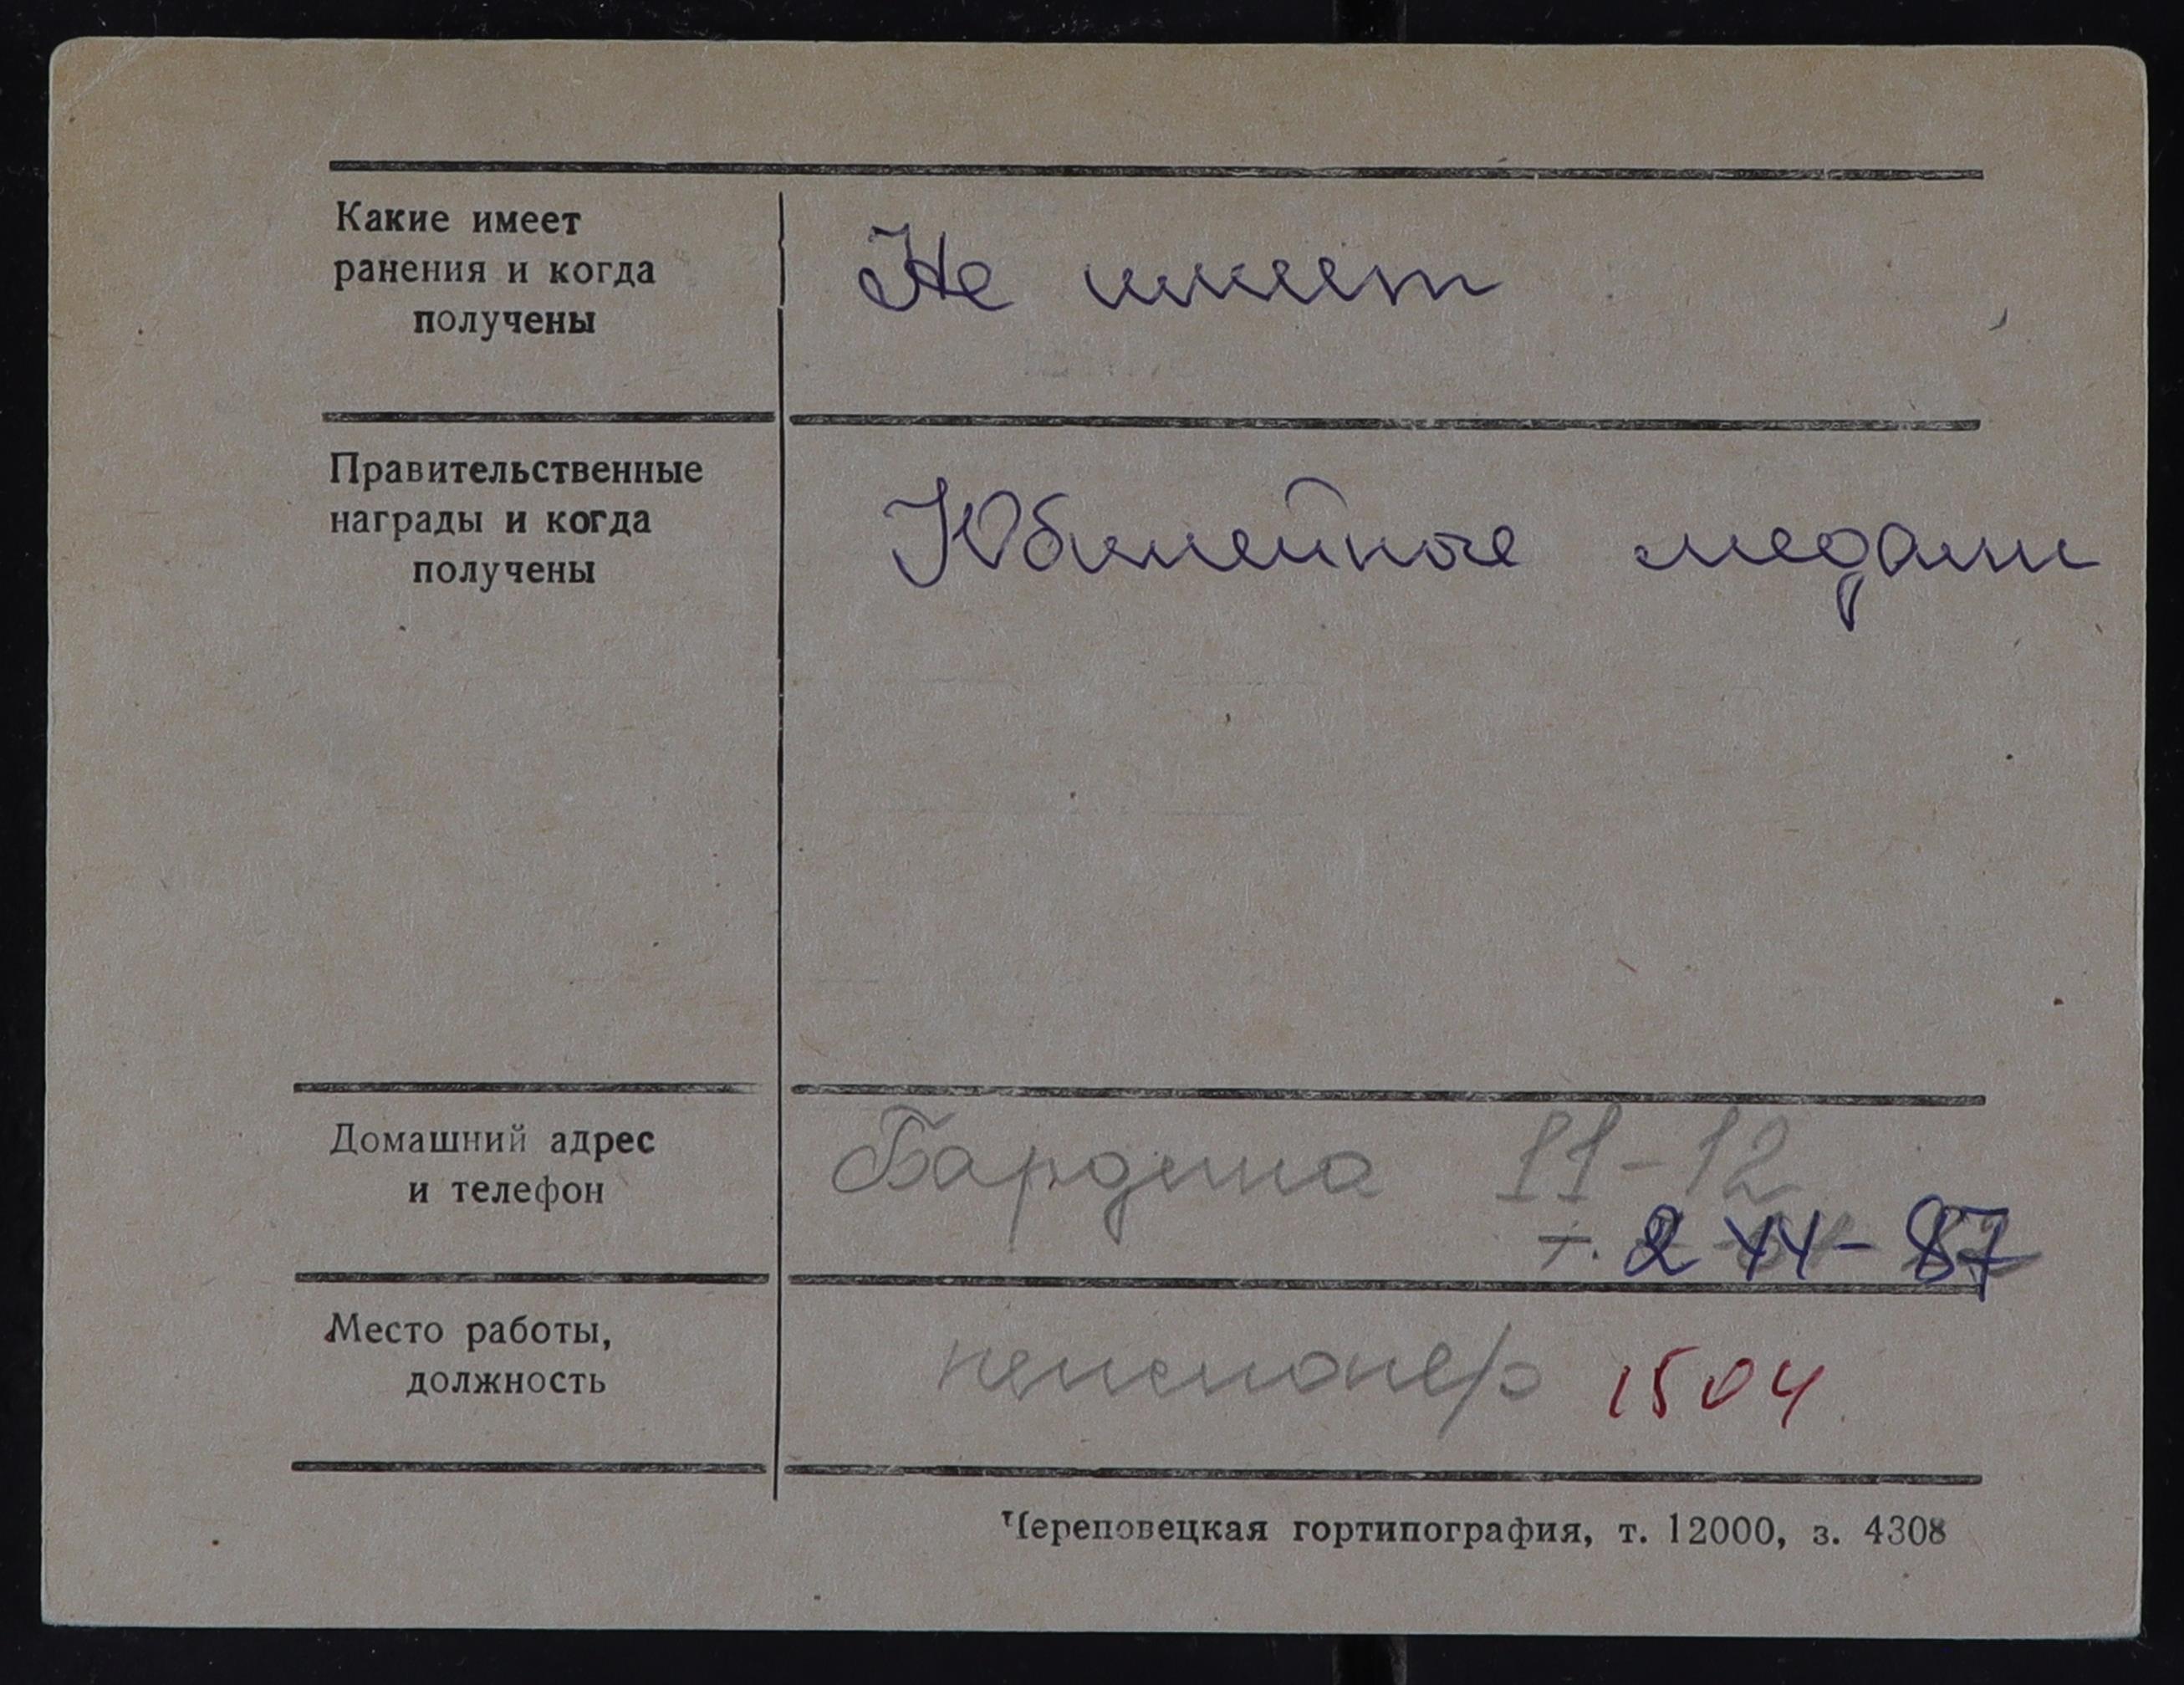 Какие имеет
ранения и когда
получены
Не имеет
Правительственные
награды и когда
получены
Юбилейные медали
Домашний адрес
и телефон
Бардина 11-12
т. 2 44-87
Место работы,
должность
пенсионер 1504
Череповецкая гортипография, т. 12000, з. 4308